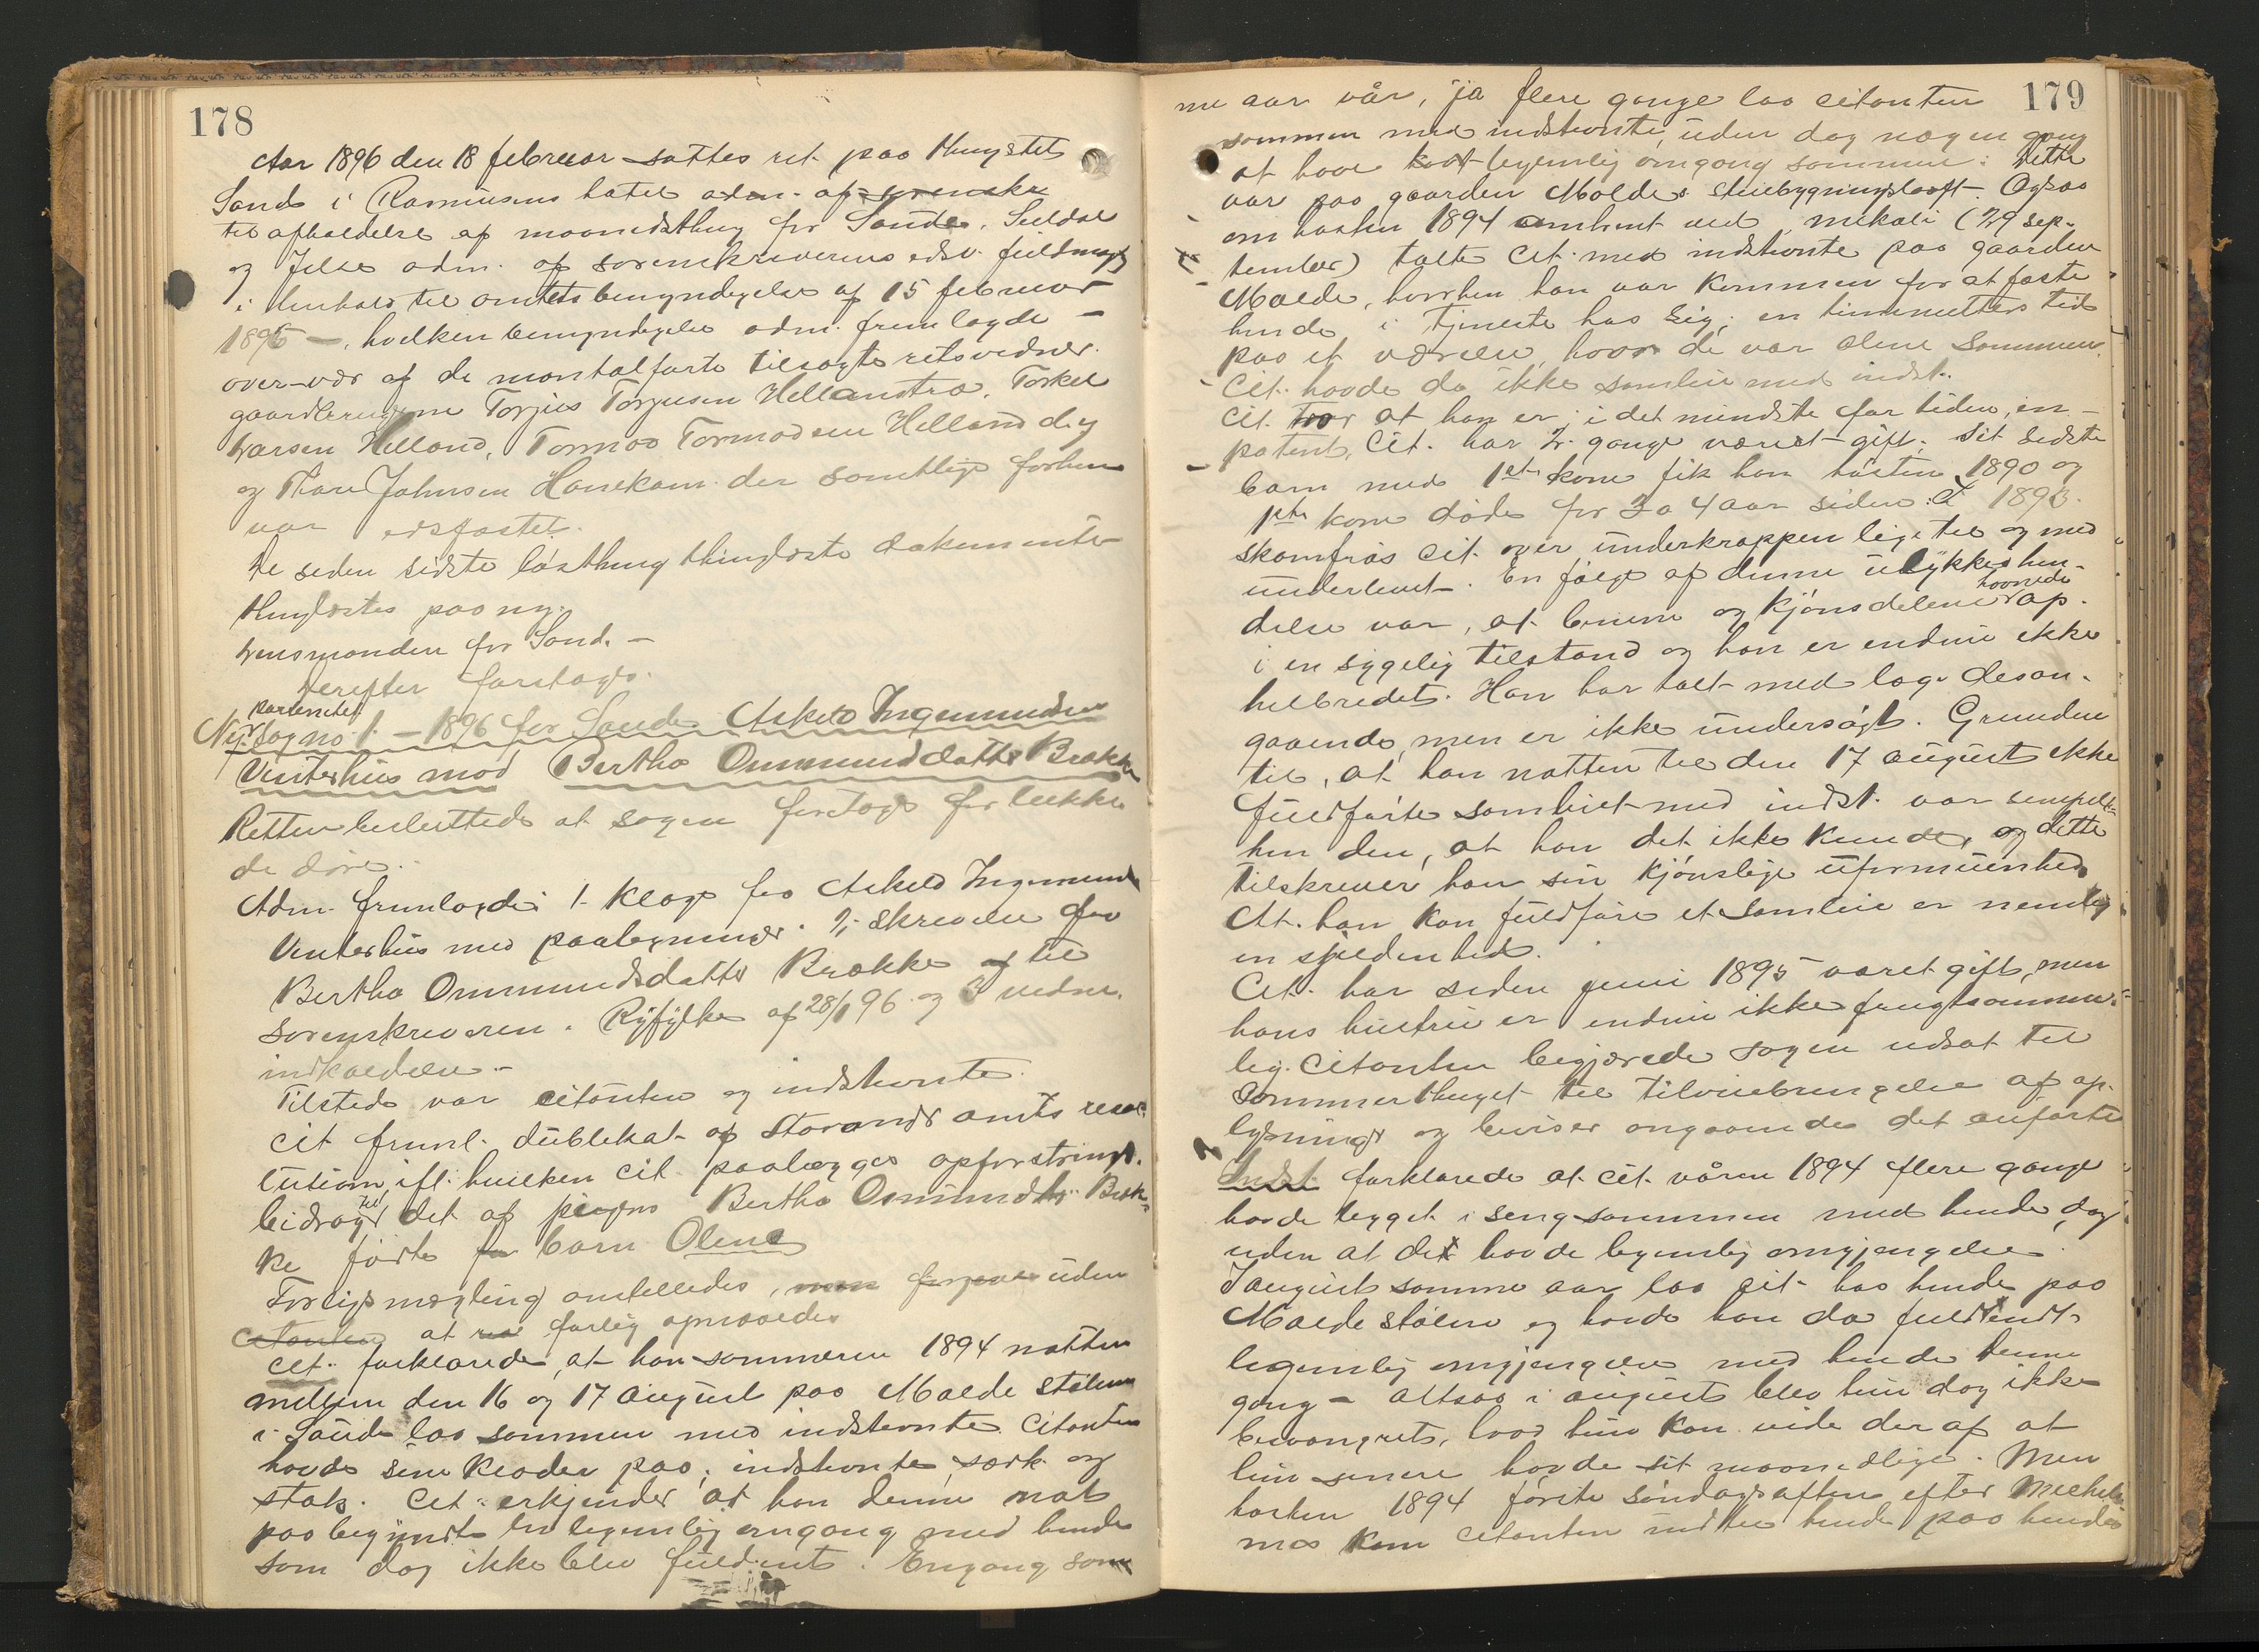 178
Aar 1896 den 18 februar sattes ret paa thingstet
Sand i Rasmusens hotel adm. af sorenskr
til afholdelse af maanedsthing for Sande, Suldal
og Jelse adm. af sorenskriverens edsv. fuldmægt
i henhold til amtets bemyndigelse af 15 februar
1896 –, hvilken bemyndigelse adm. fremlagde –
over-vær af de mantalførte tilsagte retsvidner.
gaardbrugerne Torjus Torjusen Hellandtra, Torkel
Larsen Helland, Tormod Tormodsen Helland d.y
og Thore Johnsen Hanekam der samtlige forhen
var edfæstet.
De siden sidste løsthing thinglæste dokumenter
thinglæstes paa ny.
Lensmanden for Sand. –
Derefter foretoges.
paternitets
Ny Sag no 1 – 1896 for Sande Askild Ingemundsen
Vinterhus mod Bertha Ommunddatter Brække
Retten besluttede at sagen foretoges for lukke
de døre.
Adm. fremlagde: 1. Klage fra Askild Ingemunds
Vinterhus med paategninger. 2; skrivelse fra
Bertha Ommundsdatter Brække af til
sorenskriveren i Ryfylke af 28/1 96 og 3 vidne
indkaldelse –
Tilstede var citanten og indstevnte.
Cit freml. dublikat af Stavanger amts reso
lution, ifl. hvilken cit. paalægges opfostrings.
bidrag til det af pigen Bertha Osmundsdtr. Bræk=
ke fødte barn Olene
Forligsmægling anstilledes, men forgjæves uden
Citanten at forlig opnaaedes
Cit. forklarede, at han sommeren 1894 natten
mellem den 16 og 17 august paa Molde stølen
i Saude laa sammen med indstevnte. Citanten
havde sine klæder paa, indstevnte særk og
stak. Cit. erkjender at han denne nat
paabegyndte legemlig omgang med hende
som dog ikke blev fuldendt. Engang som
179
me aar vår, ja flere gange laa citanten
sammen med indstevnte, uden dog nogen gang
at have havt legemlig omgang sammen. Dette
var paa gaarden Molde's stuebygningsloft. Ogsaa
om høsten 1894 omtrent ved mikali (29 sep-
tember) talte Cit. med indstevnte paa gaarden
Molde, hvorhen han var kommen for at fæste
hende i tjeneste hos sig; en times tid
paa et værelse, hvor de var alene sammen.
Cit. havde da ikke samleie med indst.
Cit. tror at han er, i det mindste for tiden, im-
potent. Cit. har 2 gange været gift. Sit sidste
barn med 1ste kone fik han høsten 1890 og
1ste kone døde for 3 a 4 aar siden. I 1893.
skamfrøs cit. over underkroppen lige til og med
underlivet. En følge af denne ulykkes hen-
delse var, at benene og kjønsdelene hovnede op.
i en sygelig tilstand og han er endnu ikke
helbredet. Han har talt med læge desan-
gaaende, men er ikke undersøgt. Grunden
til, at han natten til den 17 august ikke
fuldførte samleiet med indst. var simpelt-
hen den, at han det ikke kunde, og dette
tilskriver han sin kjønslige uformuenhed
At han kan fuldføre et samleie er nemlig
en sjeldenhed.
Cit. har siden juni 1895 været gift, men
hans hustru er endnu ikke frugtsomme-
lig. Citanten begjærede sagen udsat til
Sommerthinget til tilveiebringelse af op-
lysninger og beviser angaaende det anførte
Indst. forklarede at cit. våren 1894 flere gange
havde ligget i seng sammen med hende, dog
uden at de havde legemlig omgjengelse.
I august samme aar laa cit. hos hende paa
Molde stølen og havde han da fuldendt
legemlig omgjengelse med hende denne
gang – altsaa i august blev hun dog ikke
besvangret, hvad hun kan vide deraf at
hun senere havde sit maanedlige. Men
høsten 1894 første søndagsaften efter Micheli
mes kom citanten ind til hende paa hendes